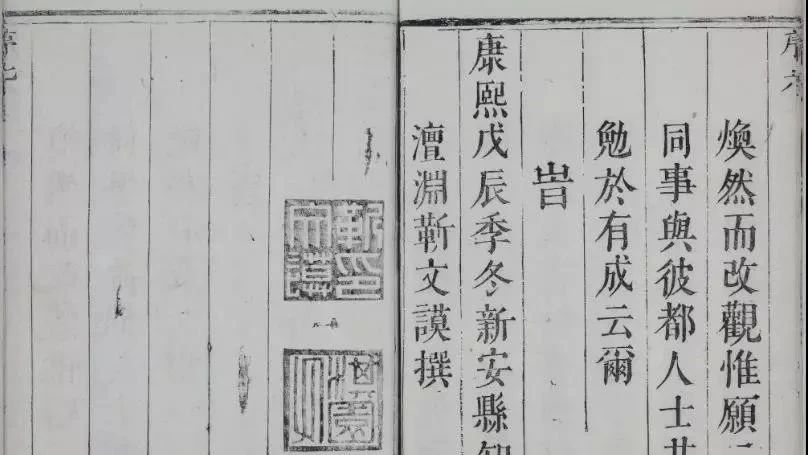 序六
煥然而改觀惟願
同事與彼都人士共
勉於有成云爾
旹
康熙戊辰季冬新安縣知
澶淵靳文謨撰
序七